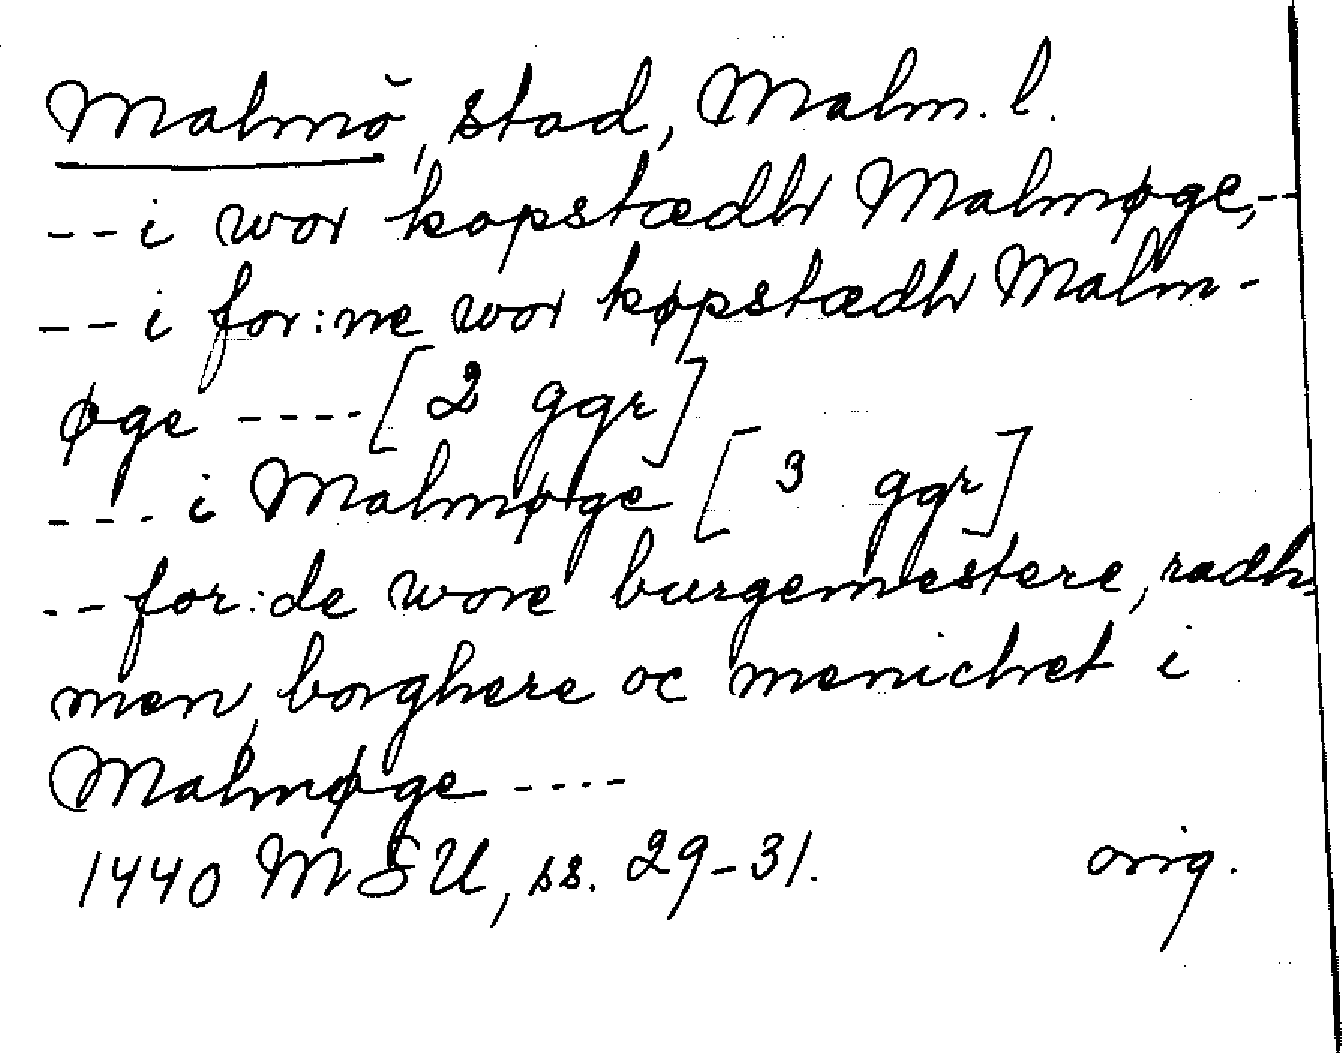 Malmö, stad, Malm. l.
-- i wor kopstædhr Malmøge, --
-- i for:ne wor køpstædhr Malm-
øge ---- [2 ggr]
--- i Malmøge [3 ggr]
-- for:de wore burgemestere, radh-
men, borghere oc menichet i
Malmøge ----
1440 MSU, ss. 29-31. orig.